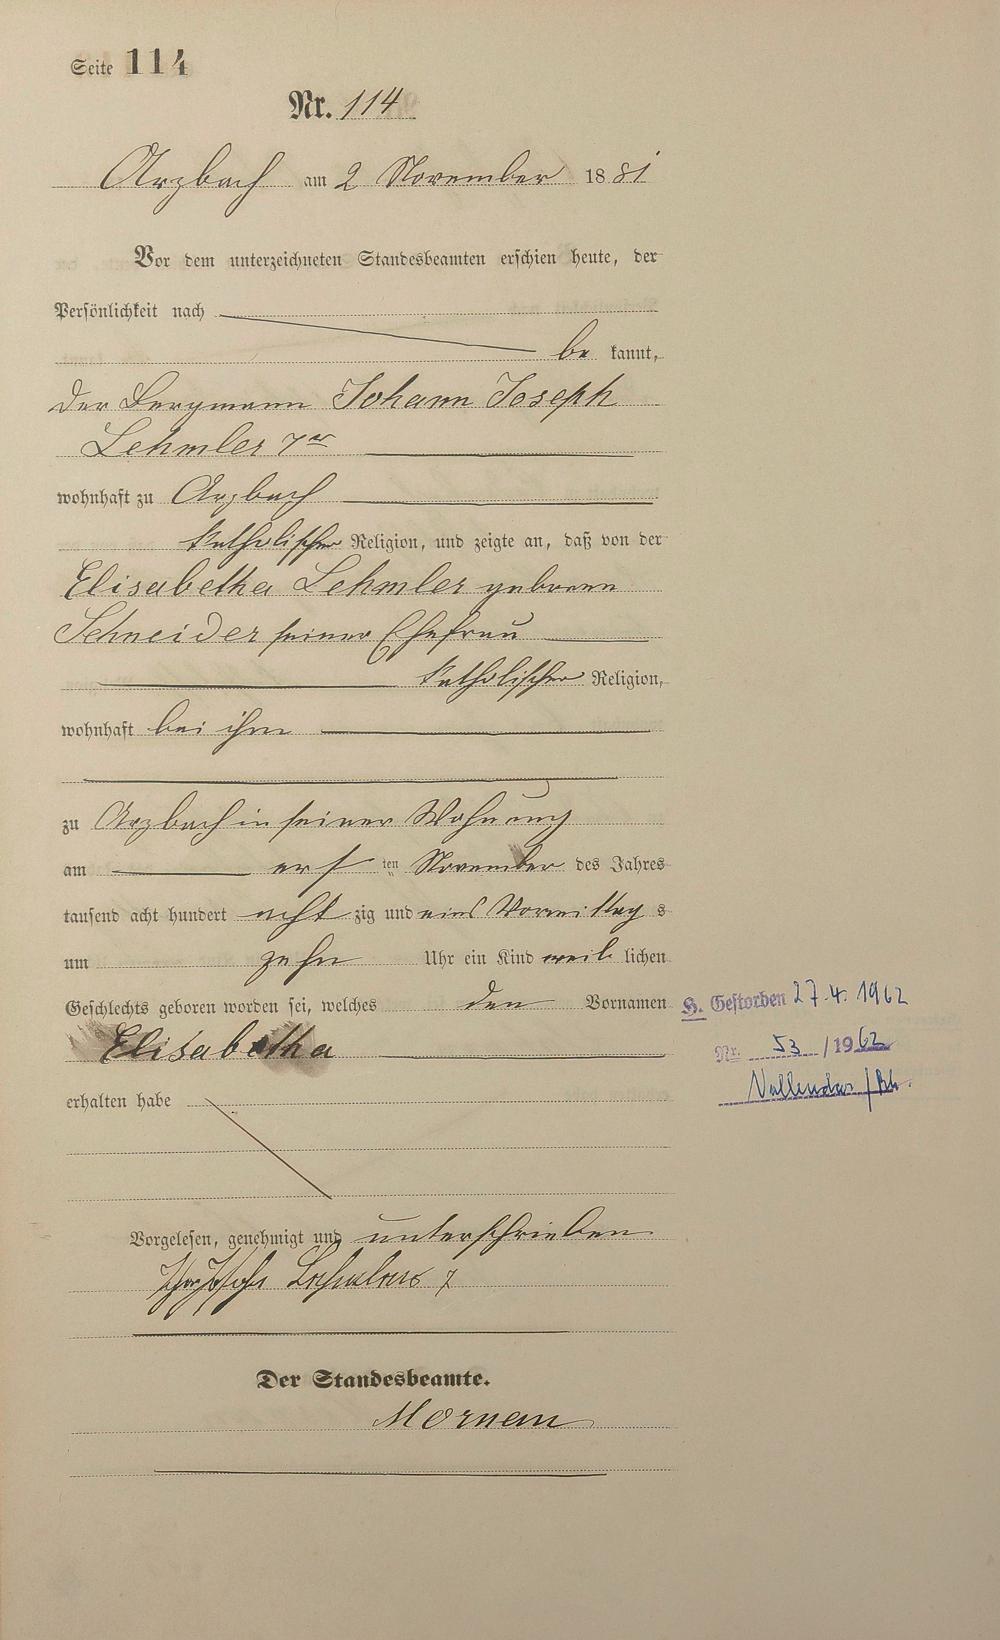 Seite 114
Nr. 114
Arzbach am 2 November 1881
Vor dem unterzeichneten Standesbeamten erschien heute, der
Persönlichkeit nach
be kannt,
der Bergmann Johann Joseph
Lehmler 7er
wohnhaft zu Arzbach
katholischer Religion, und zeigte an, daß von der
Elisabetha Lehmler geborene
Schneider seiner Ehefrau
katholischer Religion,
wohnhaft bei ihm
zu Arzbach in seiner Wohnung
am erst ten November des Jahres
tausend acht hundert acht zig und eins Vormittag s
um zehn Uhr ein Kind weib lichen
Geschlechts geboren worden sei, welches den Vornamen
Elisabetha
erhalten habe
H. Gestorben 27.4. 1962
Nr. 53 / 1962
Vallendar / Rh.
Vorgelesen, genehmigt und unterschrieben
Lehmler 7
Der Standesbeamte.